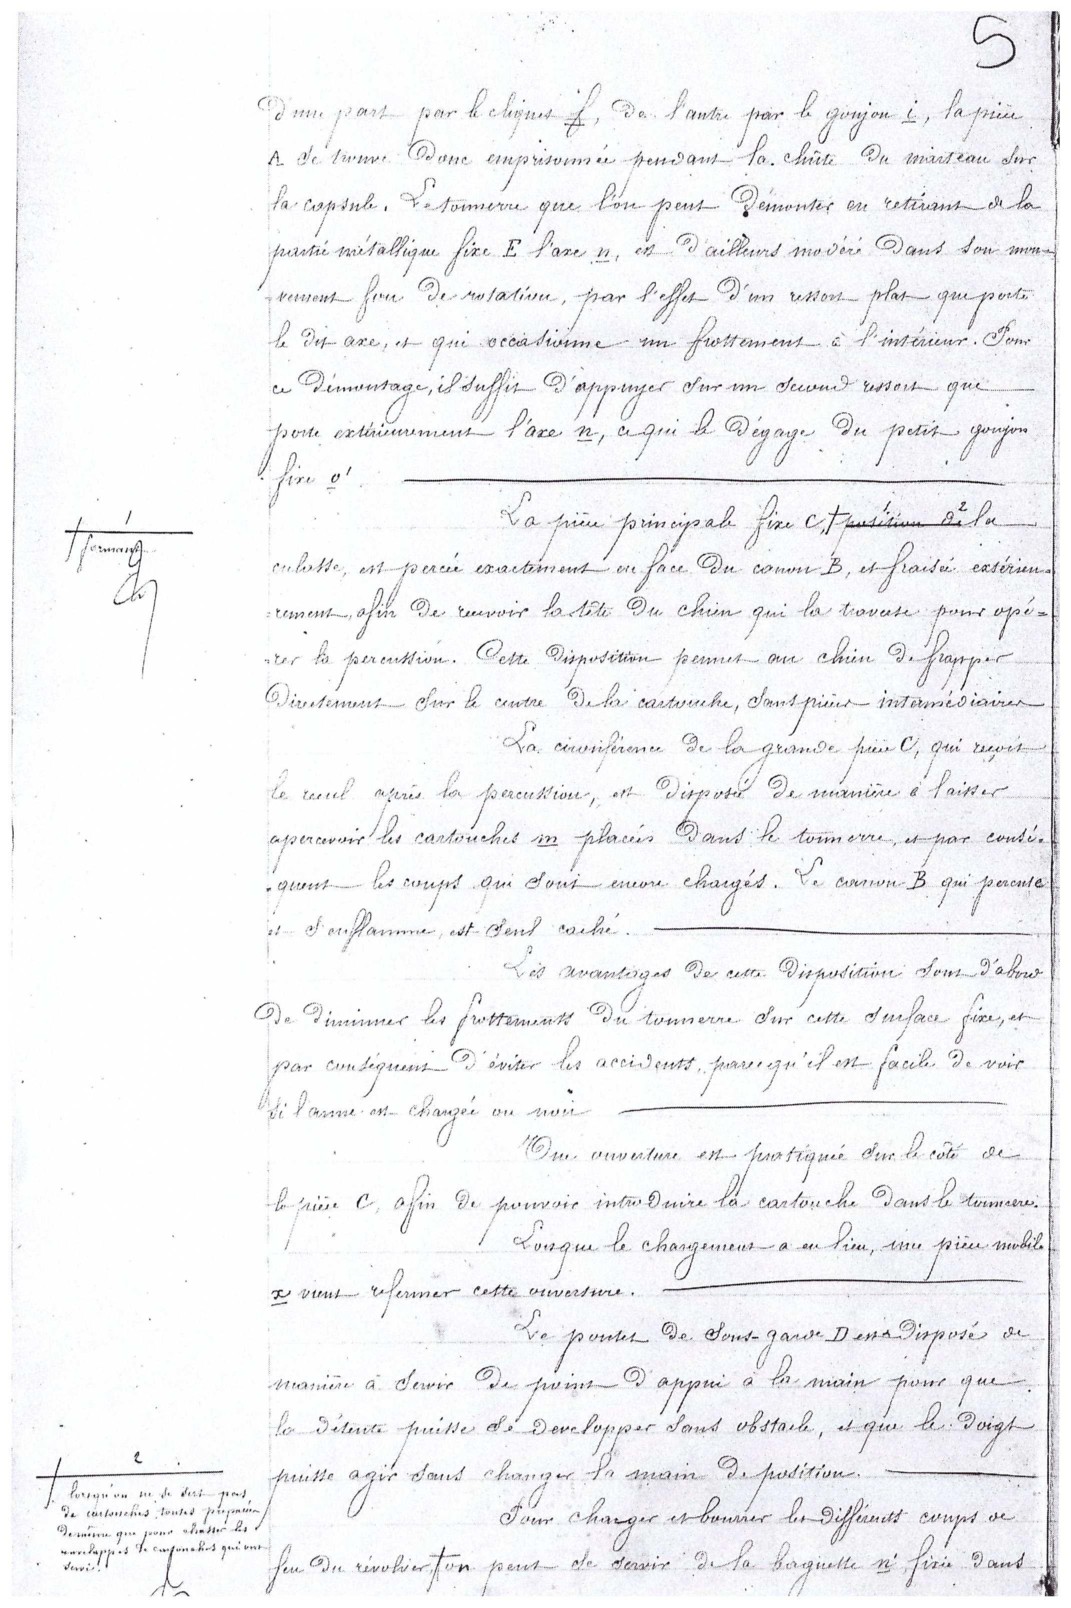 5
d'une part par le cliquet f, de l'autre par le goujon i, la pièce
A se trouve donc emprisonnée pendant la chûte du marteau sur
la capsule. Le tonnerre que l'on peut démonter en retirant de la
partie métallique fixe E l'axe n, est d'ailleurs modéré dans son mou-
-vement fou de rotation, par l'effet d'un ressort plat que porte
le dit axe, et qui occasionne un frottement à l'intérieur. Pour
ce démontage, il suffit d'appuyer sur un second ressort que
porte extérieurement l'axe n, ce qui le dégage du petit goujon
fixe o'
La pièce principale fixe C, † position de la
1
2
culasse, est percée exactement en face du canon B, et fraisée extérieu-
-rement, afin de recevoir la tête du chien qui la traverse pour opé=
-rer la percussion. Cette disposition permet au chien de frapper
directement sur le centre de la cartouche, sans pièces intermédiaires
La circonférence de la grande pièce C, qui reçoit
le recul après la percussion, est disposée de manière à laisser
apercevoir les cartouches m placées dans le tonnerre, et par consé-
-quent les coups qui sont encore chargés. Le canon B qui percute
et s'enflamme, est seul caché.
Les avantages de cette disposition sont d'abord
de diminuer les frottements du tonnerre sur cette surface fixe, et
par conséquent d'éviter les accidents, parcequ'il est facile de voir
si l'arme est chargée ou non
Une ouverture est pratiquée sur le côté de
la pièce C, afin de pouvoir introduire la cartouche dans le tonnerre.
Lorsque le chargement a eu lieu, une pièce mobile
x vient refermer cette ouverture.
Le pontet de sous-garde D est disposé de
manière à servir de point d'appui à la main pour que
la détente puisse se developper sans obstacle, et que le doigt
puisse agir sans changer la main de position.
Pour charger et bourrer les différents coups de
feu du révolver † on peut se servir de la baguette n' fixée dans
1
† formant
2
† lorsqu'on ne se sert pas
de cartouches toutes préparées
de même que pour chasser les
enveloppes de cartouches qui ont
servi.